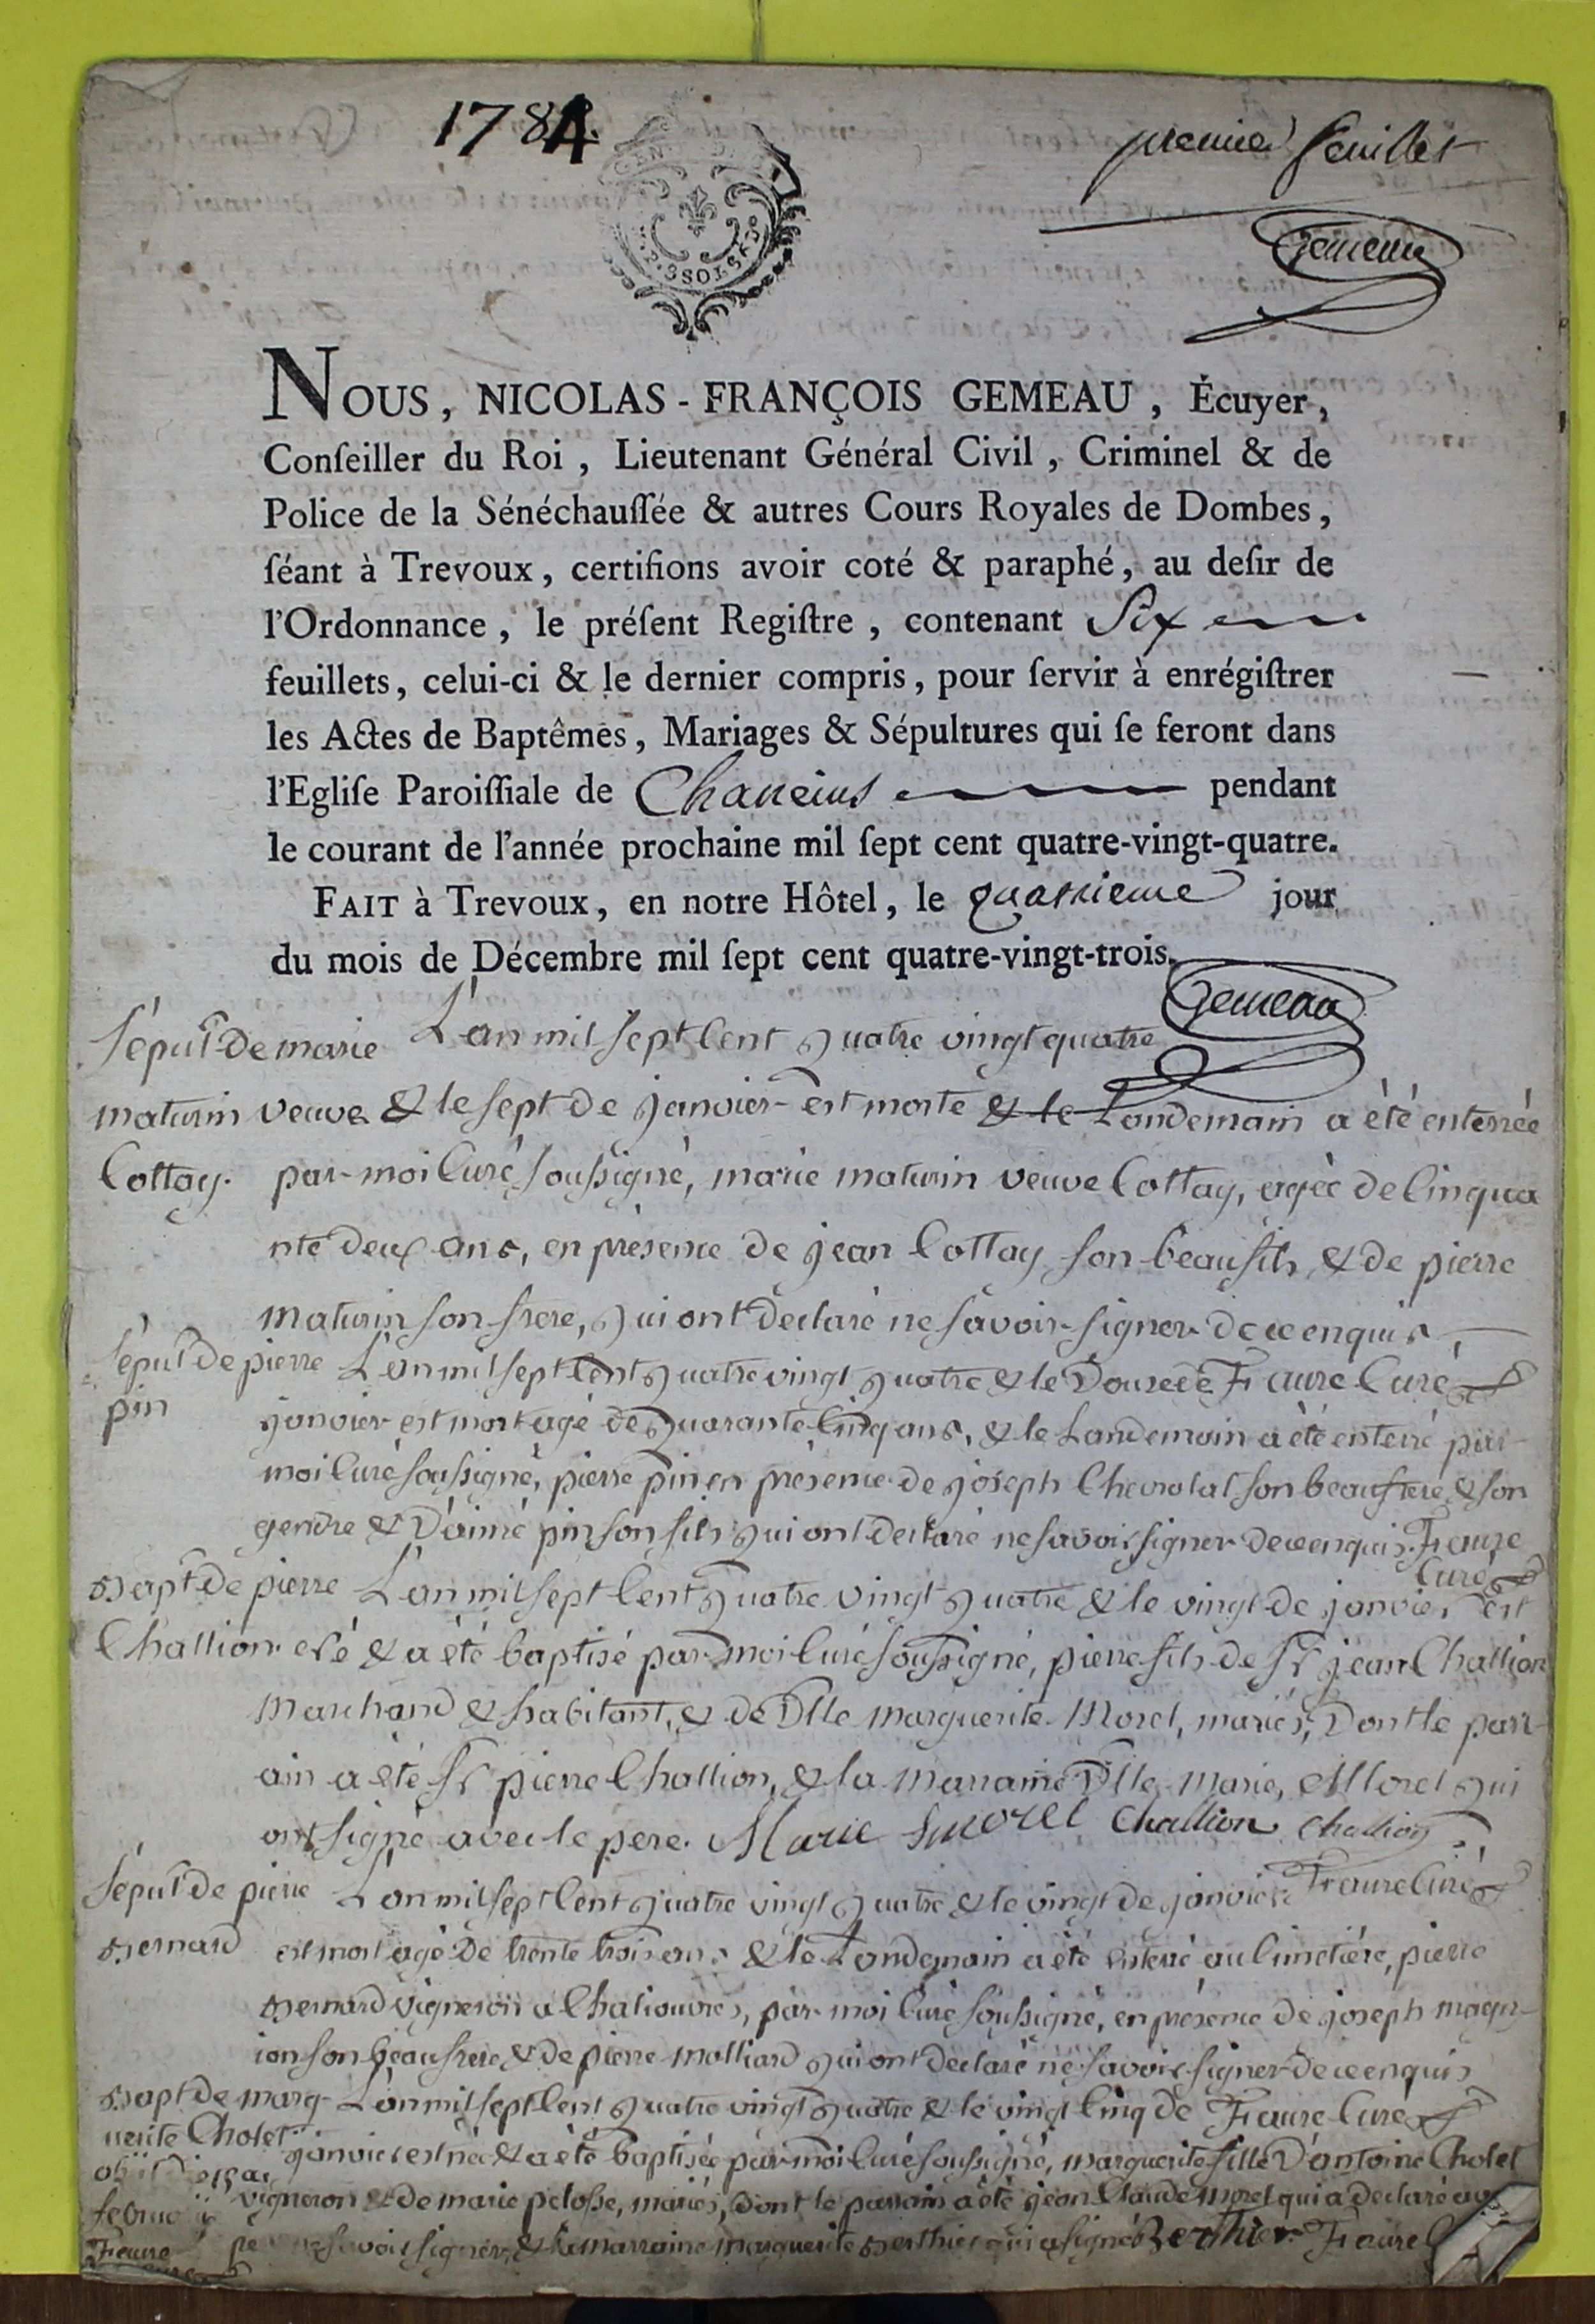 1784.
premier feuillet
Gemeau
GENER
2.SSOLS 8.D
NOUS, NICOLAS-FRANÇOIS GEMEAU, Écuyer,
Conſeiller du Roi, Lieutenant Général Civil, Criminel & de
Police de la Sénéchauſſée & autres Cours Royales de Dombes,
ſéant à Trevoux, certifions avoir coté & paraphé, au deſir de
l'Ordonnance, le préſent Regiſtre, contenant Six
feuillets, celui-ci & le dernier compris, pour ſervir à enrégiſtrer
les Actes de Baptêmes, Mariages & Sépultures qui ſe feront dans
l'Egliſe Paroiſſiale de Chaneins pendant
le courant de l'année prochaine mil ſept cent quatre-vingt-quatre.
FAIT à Trevoux, en notre Hôtel, le quatrieme jour
du mois de Décembre mil ſept cent quatre-vingt-trois.
Gemeau
Sépult de marie L'an mil sept Cent quatre vingt quatre
maturin veuve & le sept de janvier est morte & le Landemain a été enterrée
Cottay. par moi Curé soussigné, marie maturin veuve Cottay, agée de Cinqua
nte deux ans, en présence de jean Cottay son beaufils & de pierre
maturin son frere, qui ont déclaré ne savoir signer de ce enquis
Sépult de pierre L'an mil sept Cent quatre vingt quatre & le Douze de Faure Curé
pin janvier est mort agé de quarante Cinq ans, & le Landemain a été enterré par
moi Curé soussigné, pierre pin en présence de joseph Chevrolat son beaufrere & son
gendre & D'aimé pin son fils qui ont déclaré ne savoir signer de ce enquis. Faure
Curé
Bapt de pierre L'an mil sept Cent quatre vingt quatre & le vingt de janvier est
Challion né & a été baptisé par moi Curé soussigné, pierre fils de Sr jean Challion
Marchand & habitant, & de Dlle Marguerite Morel, mariés, Dont le parr
ain a été Sr pierre Challion, & la marraine Dlle Marie Morel qui
ont signé avec le pere. Marie morel Challion Challion
Sépult de pierre L'an mil sept Cent quatre vingt quatre & le vingt de janvier Faure Curé
Bernard est mort agé De trente trois ans & le Landemain a été enterré au Cimetiére, pierre
Bernard vigneron a Chaliouvres, par moi Curé soussigné, en présence de joseph magn
ion son beaufrere & de pierre Molliard qui ont déclaré ne savoir signer de ce enquis
Bapt de marg L'an mil sept Cent quatre vingt quatre & le vingt Cinq de Faure Curé
uerite Cholet janvier est née & a été baptisée par moi Curé soussigné, marguerite fille D'antoine Cholet
vigneron & de marie pelosse, mariés, Dont le parrain a été jean Claude morel qui a déclaré
Faure savoir signer & la marraine marguerite Berthier qui a signé Berthier Faure